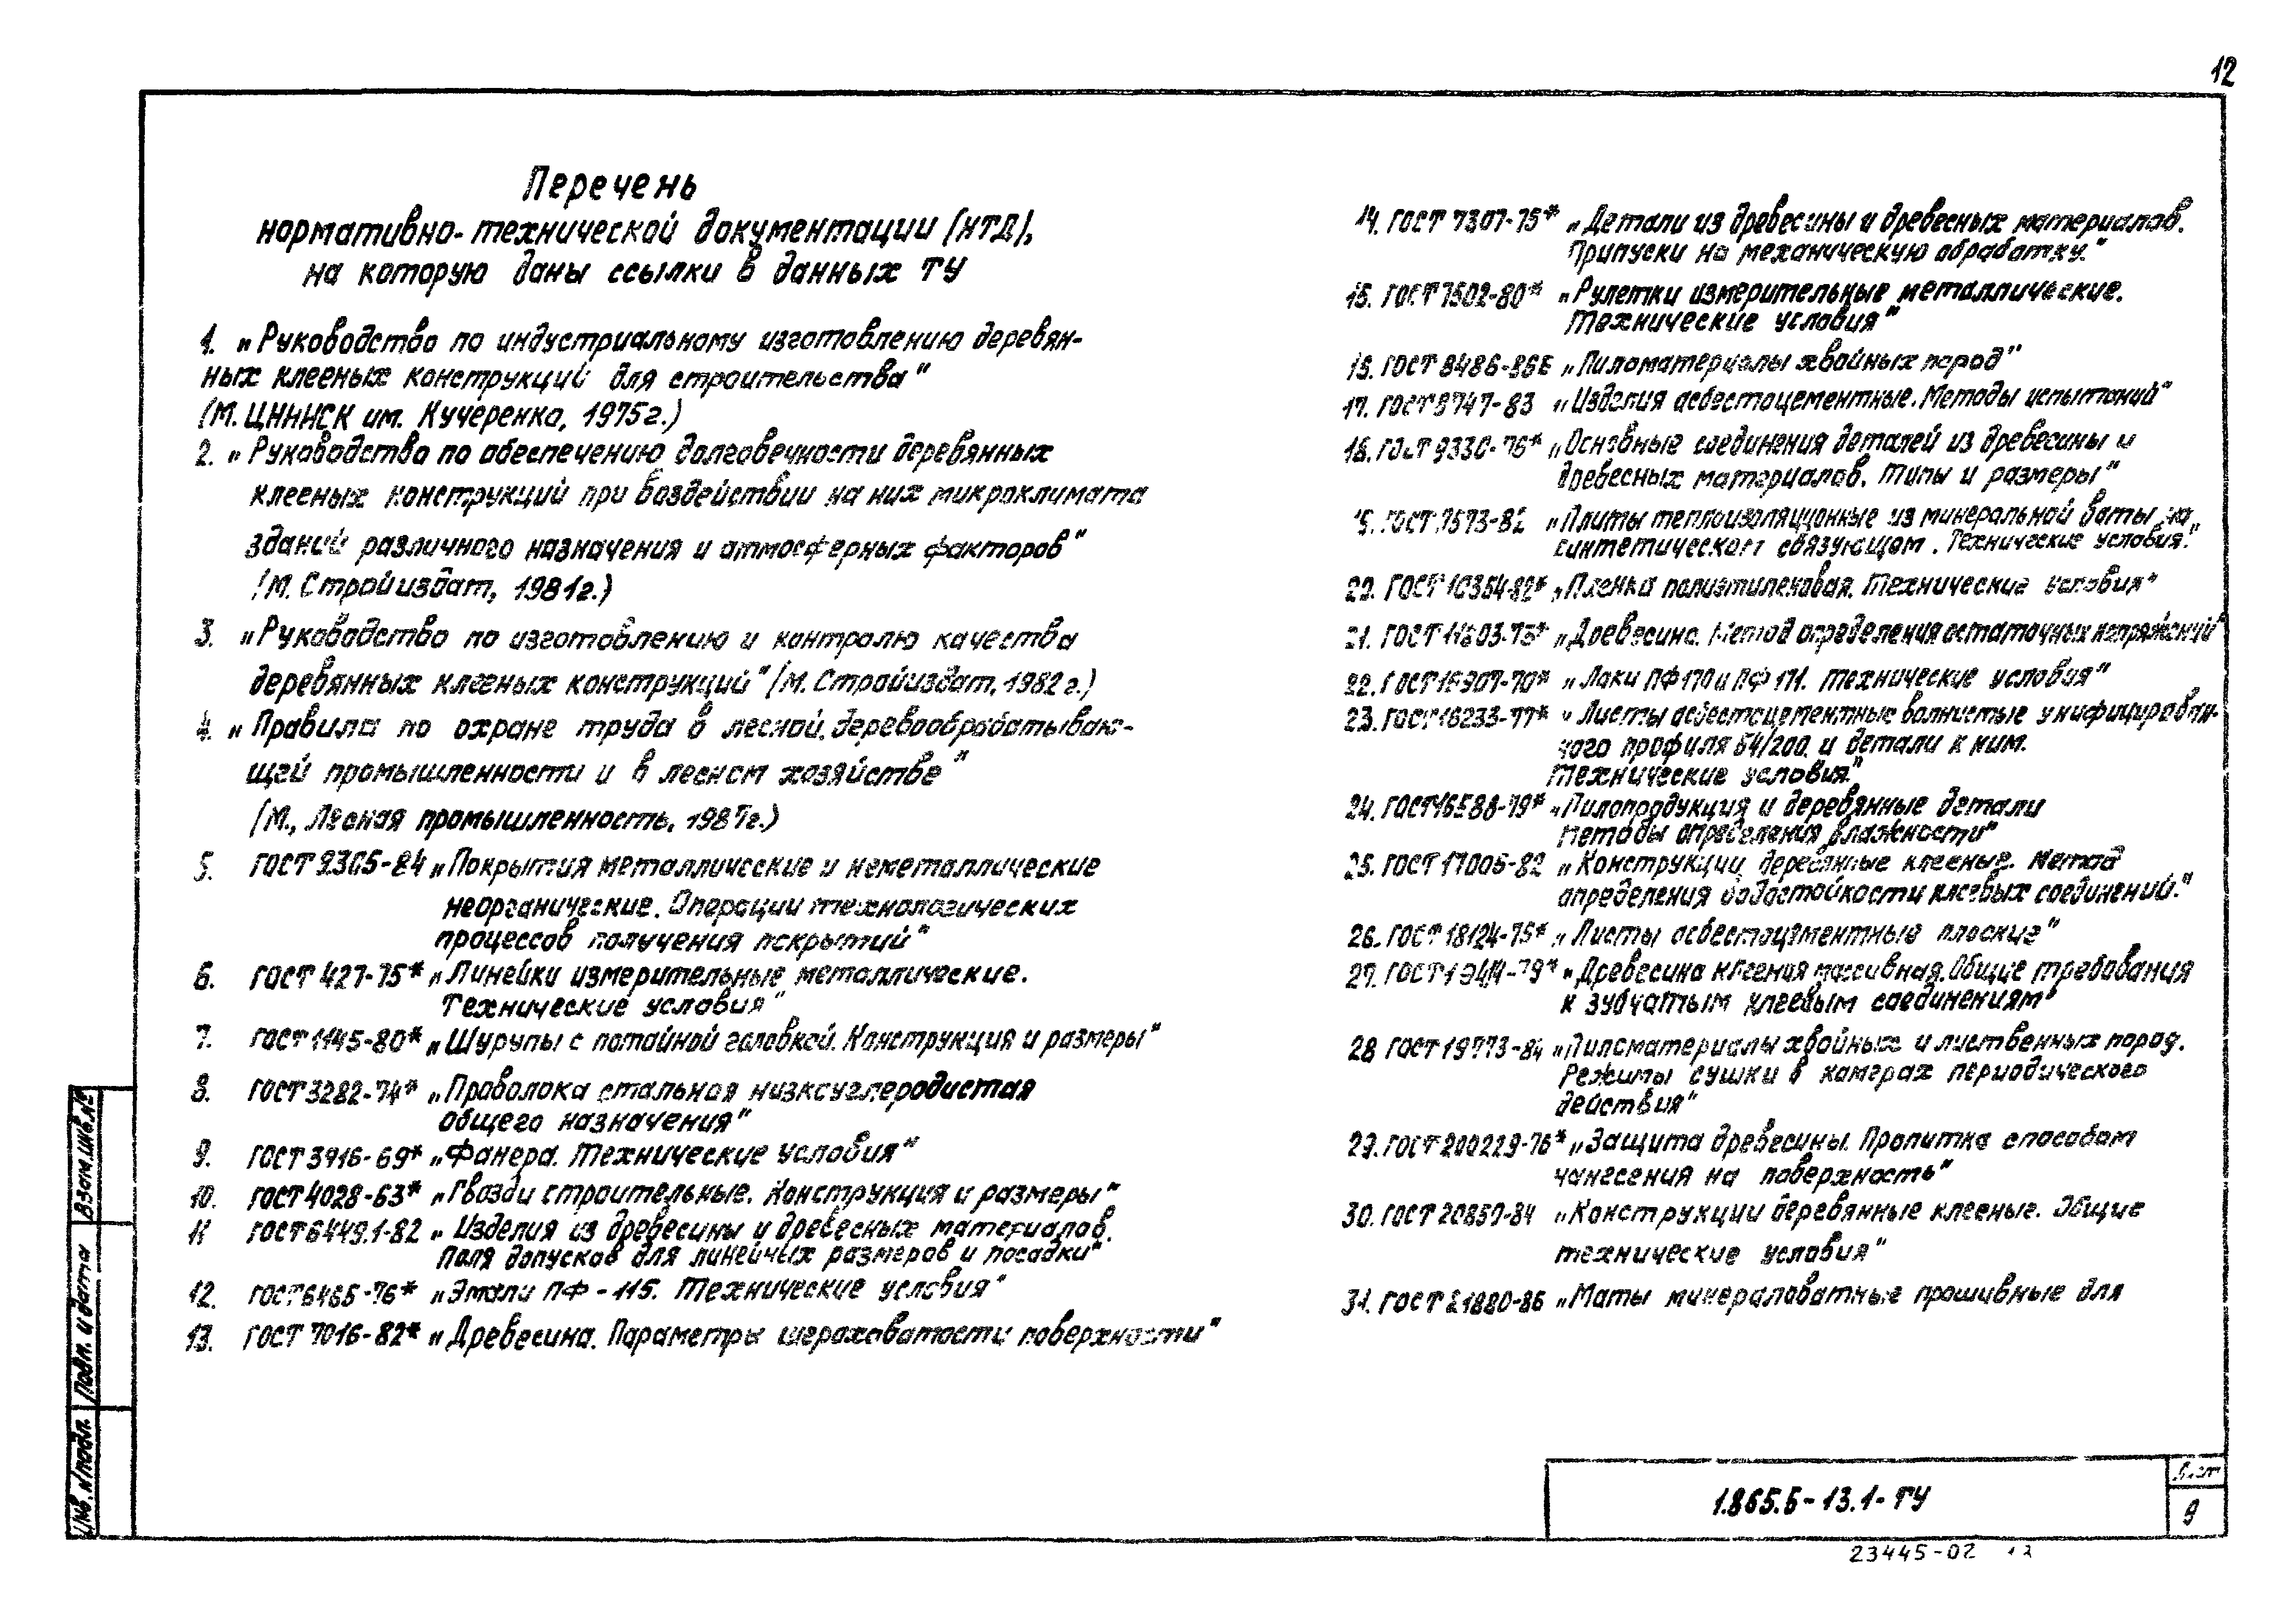 12
Перечень
нормативно-технической документации (НТД),
на которую даны ссылки в данных ТУ
1. „Руководство по индустриальному изготовлению деревян-
ных клееных конструкций для строительства"
(М. ЦНИИСК им. Кучеренко, 1975г.)
2. „Руководство по обеспечению долговечности деревянных
клееных конструкций при воздействии на них микроклимата
зданий различного назначения и атмосферных факторов"
(М. Стройиздат, 1981г.)
3. „Руководство по изготовлению и контролю качества
деревянных клееных конструкций" (М. Стройиздат, 1982 г.)
4. „Правила по охране труда в лесной, деревообрабатываю-
щей промышленности и в лесном хозяйстве"
(М., Лесная промышленность,
5. ГОСТ 9.305-84 „Покрытия металлические и неметаллические
неорганические. Операции технологических
процессов получения покрытий"
6. ГОСТ 427-75* „Линейки измерительные металлические.
Технические условия"
7. ГОСТ 1145-80* „Шурупы с потайной головкой. Конструкция и размеры"
8. ГОСТ 3282-74* „Проволока стальная низкоуглеродистая
общего назначения"
9. ГОСТ 3916-69* „Фанера. Технические условия"
10. ГОСТ 4028-63* „Гвозди строительные. Конструкция и размеры"
11 ГОСТ 6449.1-82 „Изделия из древесины и древесных материалов.
Поля допусков для линейных размеров и посадки"
12. ГОСТ 6465-76* „Эмали ПФ-115. Технические условия"
13. ГОСТ 7016-82* „Древесина. Параметры шероховатости поверхности"
14. ГОСТ 7307-75* „Детали из древесины и древесных материалов.
Припуски на механическую обработку."
15. ГОСТ 7502-80* „Рулетки измерительные металлические.
Технические условия"
16. ГОСТ 8486-86Е „Пиломатериалы хвойных пород"
17. ГОСТ 8747-83 „Изделия асбестоцементные. Методы испытаний"
18. ГОСТ 9330-76* „Основные соединения деталей из древесины и
древесных материалов. Типы и размеры"
19. ГОСТ 9573-82 „Плиты теплоизоляционные из минеральной ваты на
синтетическом связующем. Технические условия."
20. ГОСТ 10354-82* „Пленка полиэтиленовая. Технические условия"
21. ГОСТ 11603-73* „Древесина. Метод определения остаточных напряжений"
22. ГОСТ 15907-70* „Лаки ПФ 170 и ПФ 171. Технические условия"
23. ГОСТ 16233-77* „Листы асбестоцементные волнистые унифицирован-
ного профиля 54/200 и детали к ним.
Технические условия."
24. ГОСТ 16588-79* „Пилопродукция и деревянные детали
Методы определения влажности"
25. ГОСТ 17005-82 „Конструкции деревянные клееные. Метод
определения водостойкости клеевых соединений."
26. ГОСТ 18124-75* „Листы асбестоцементные плоские"
27. ГОСТ 19414-79* „Древесина клееная массивная. Общие требования
к зубчатым клеевым соединениям"
28 ГОСТ 19773-84 „Пиломатериалы хвойных и лиственных пород.
Режимы сушки в камерах периодического
действия"
29. ГОСТ 200229-76* „Защита древесины. Пропитка способом
нанесения на поверхность"
30. ГОСТ 20850-84 „Конструкции деревянные клееные. Общие
технические условия"
31. ГОСТ 21880-86 „Маты минераловатные прошивные для
Взам. инв. №
Подп. и дата
Инв. № подл.
1.865.5-13.1-ТУ
Лист
9
23445-02 12